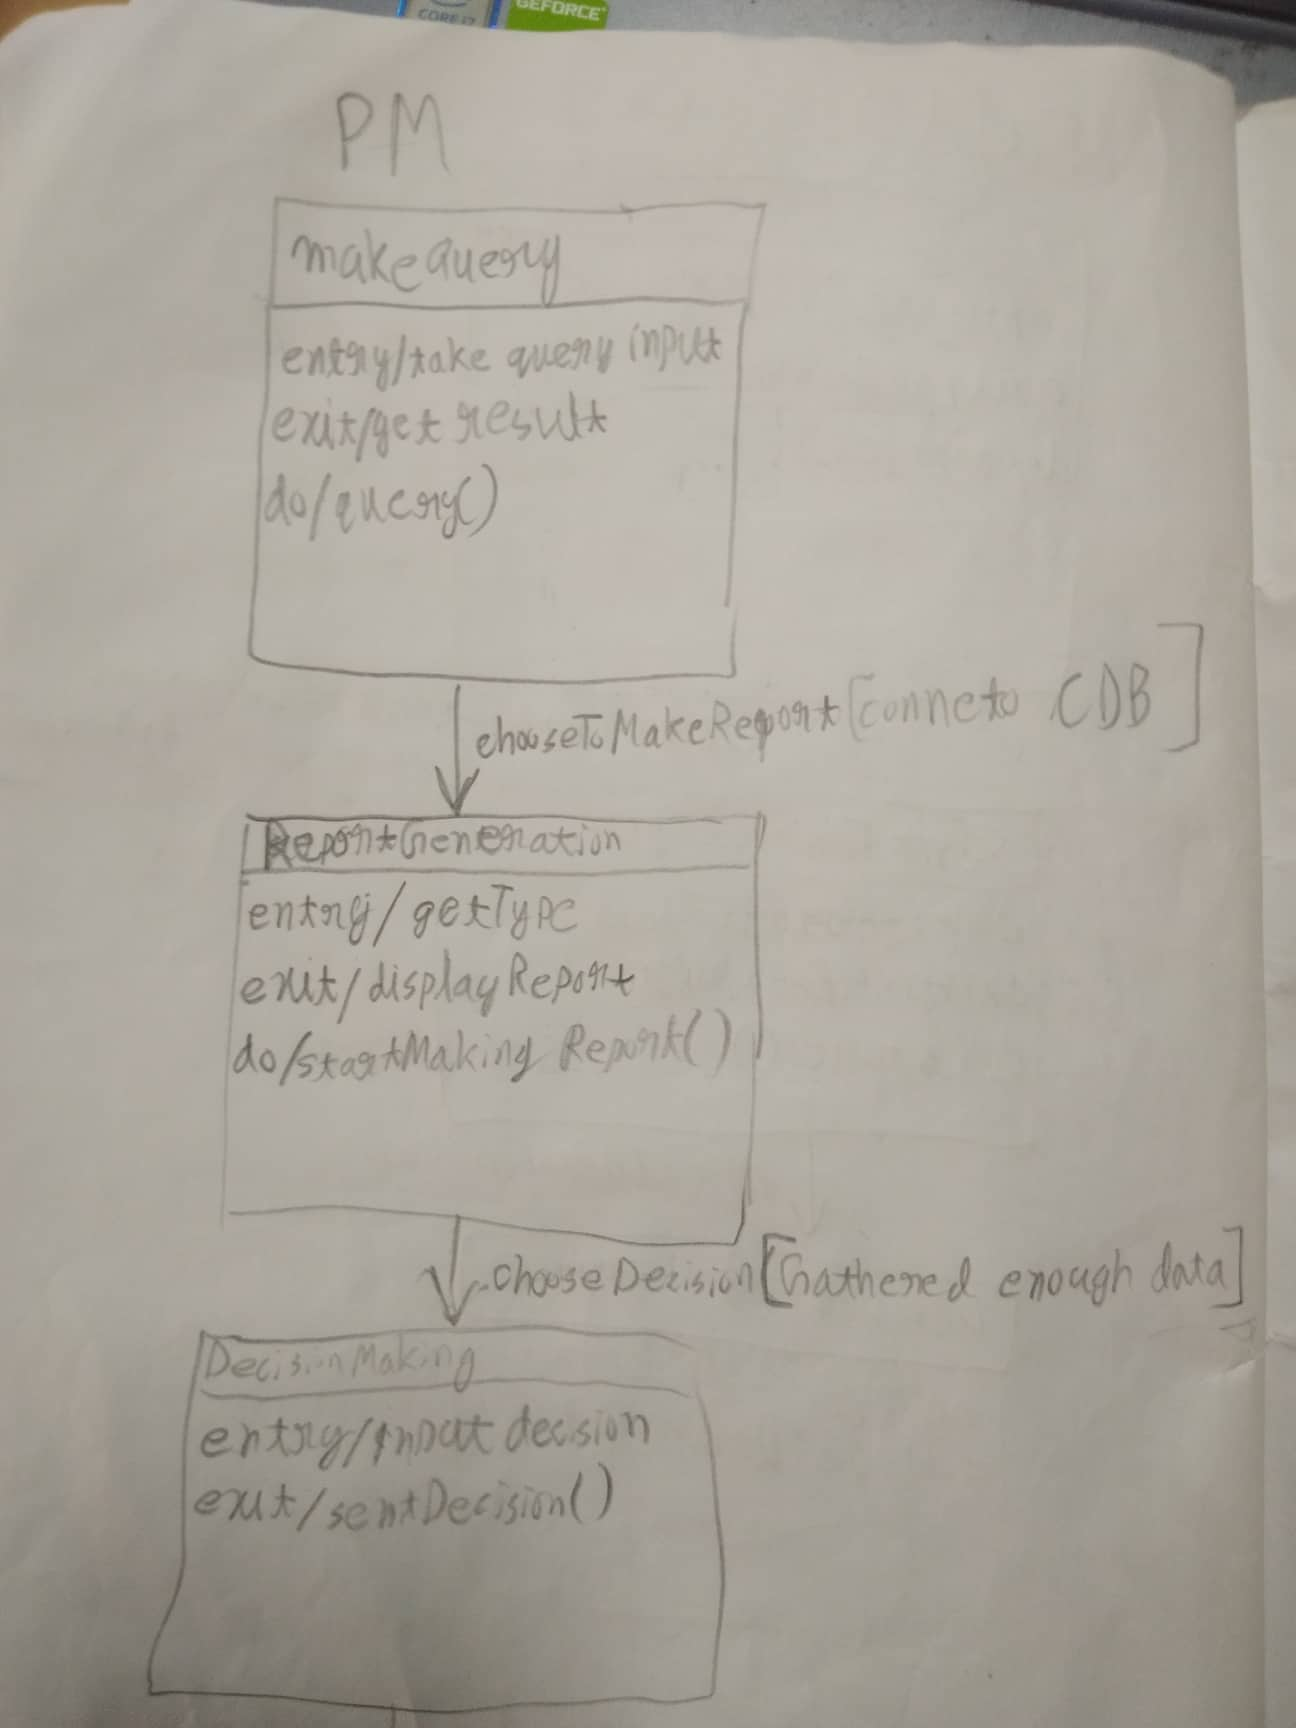 CORE i7
GEFORCE
PM
makequery
entry/take query input
exit/get result
do/query()
chooseToMakeReport[conneto CDB]
ReportGeneration
entry/getType
exit/displayReport
do/startMaking Report()
chooseDecision[Gathered enough data]
DecisionMaking
entry/input decision
exit/sentDecision()